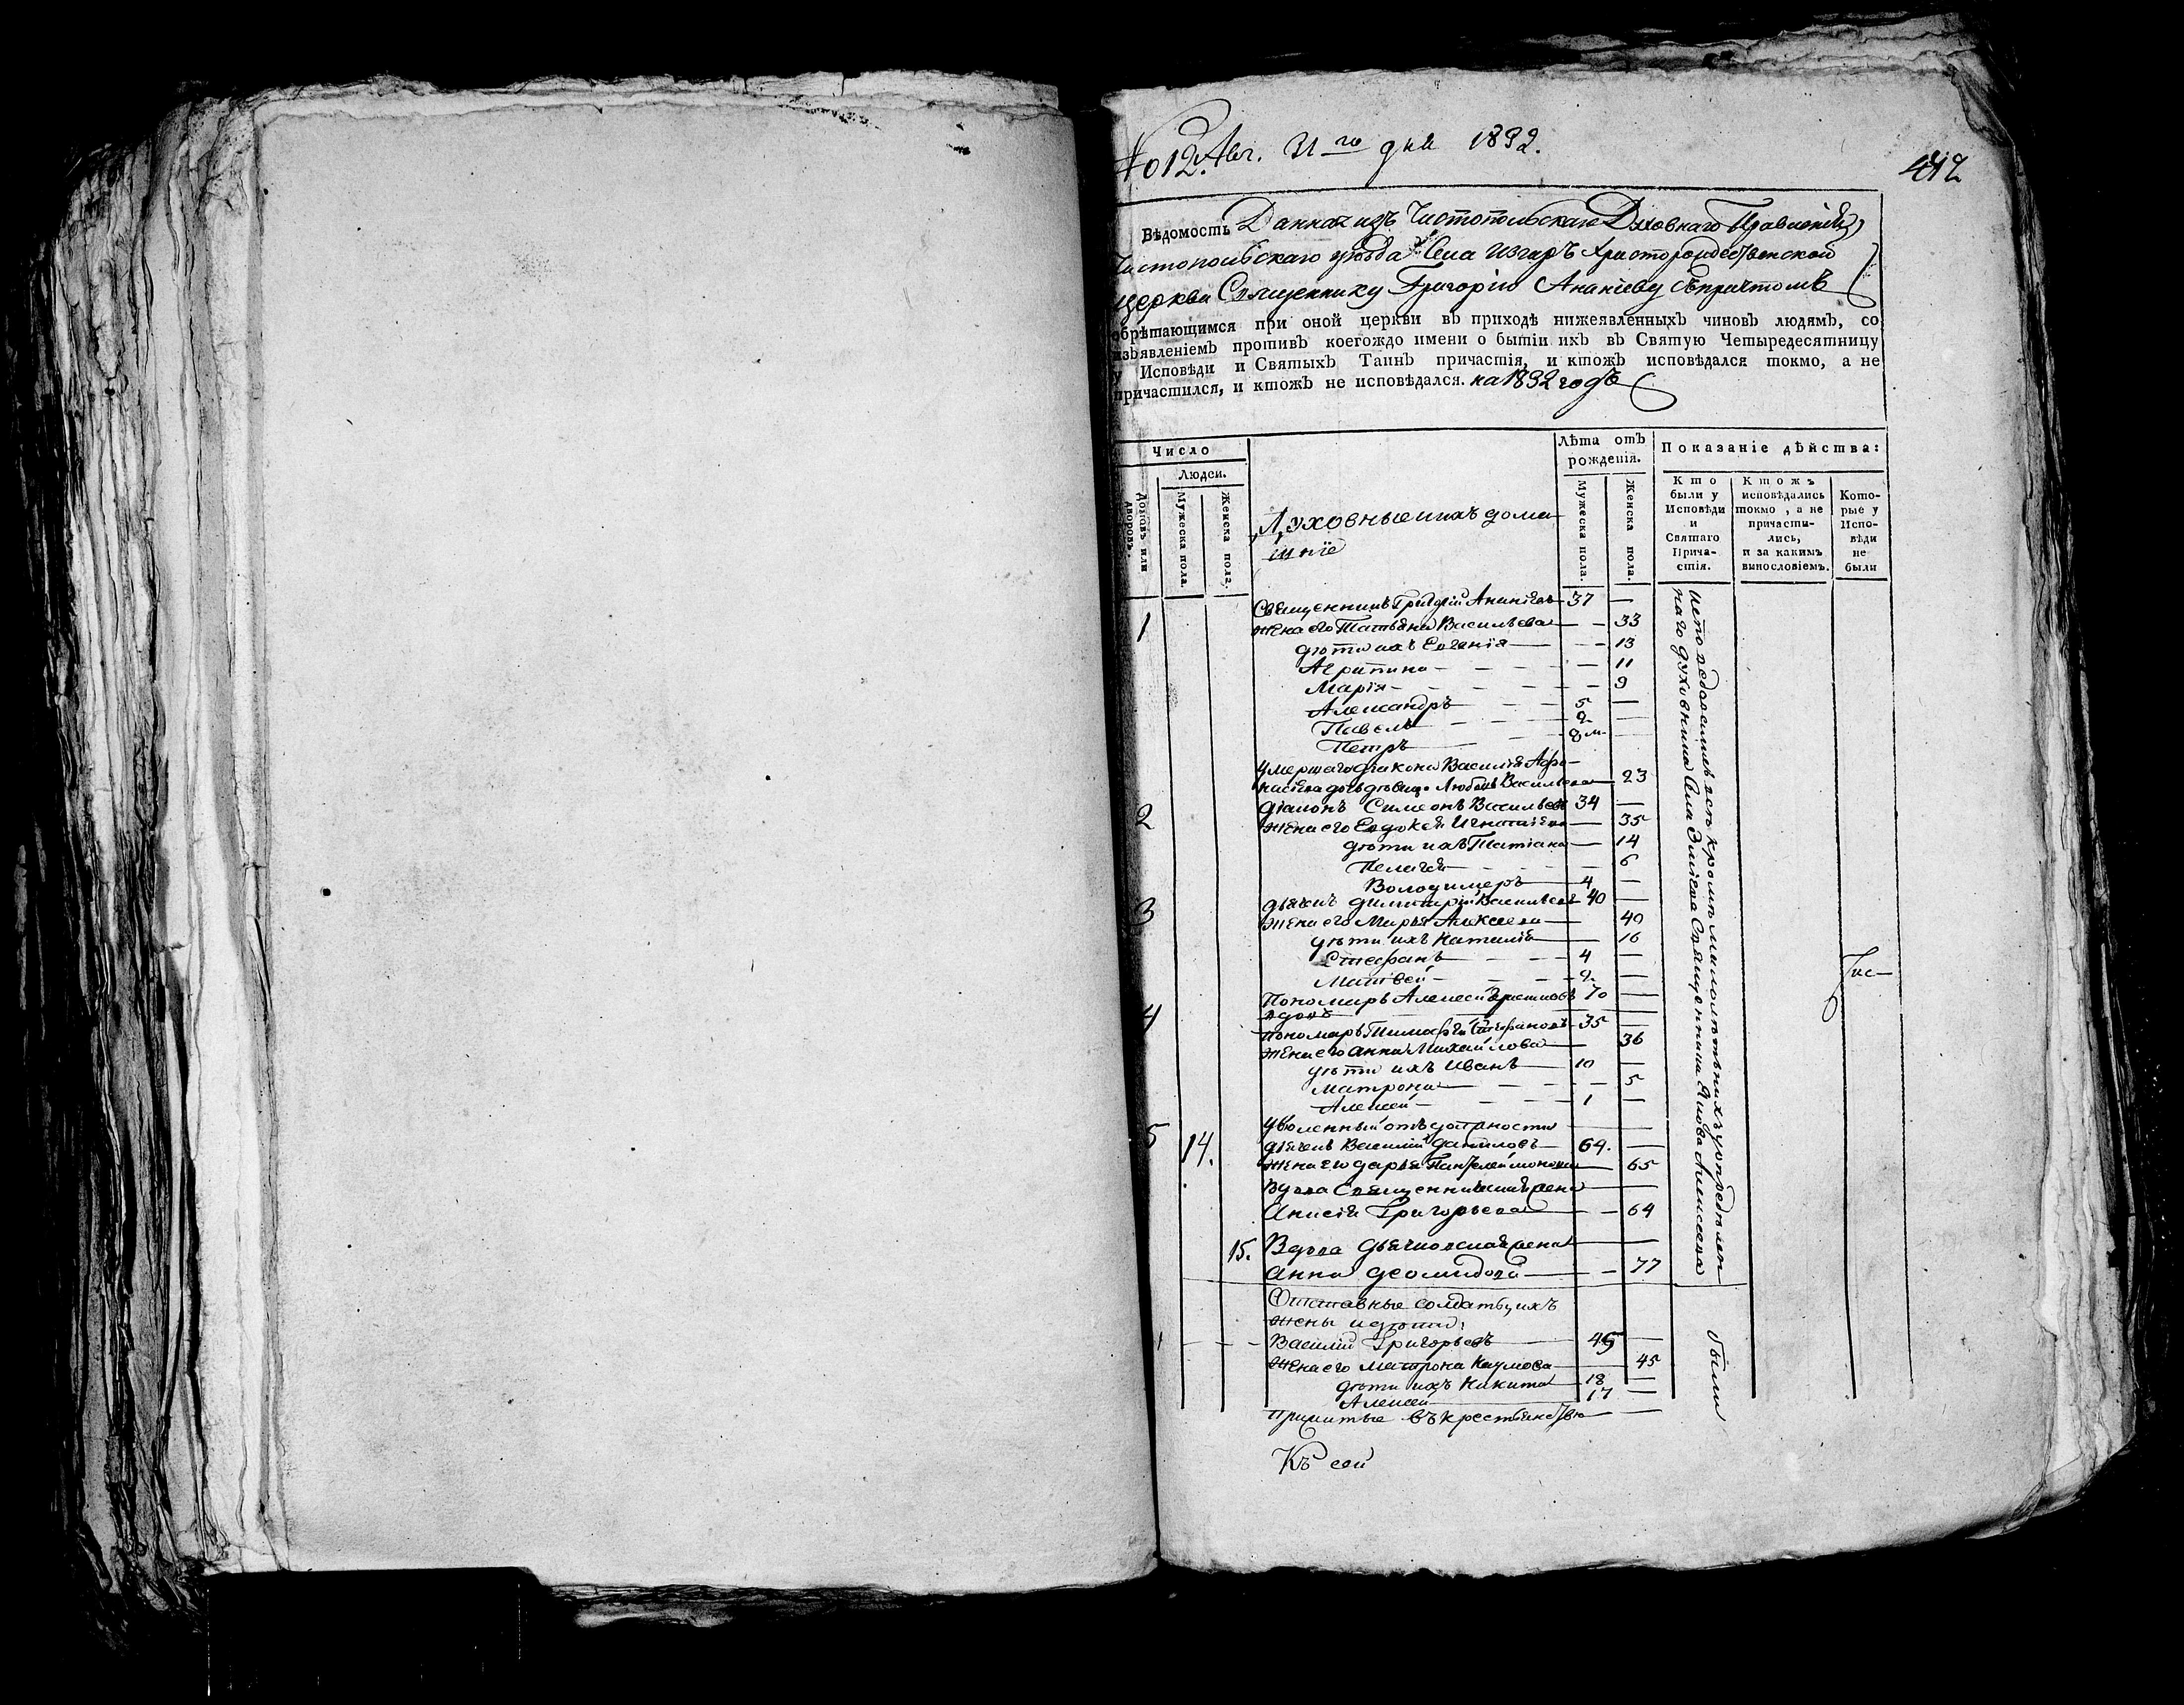 No 12. Авг. 31го дня 1832.
412
Вѣдомость Данная изъ Чистопольскаго Духовнаго Правленія,
Чистопольскаго уѣзда Села Изгаръ Христорождественской
церкви Священнику Григорію Ананіеву съ причтомъ
обрѣтающимся при оной церкви въ приходѣ нижеявленныхъ чиновъ людямъ, со
изъявленіемъ противъ коегождо имени о бытіи ихъ въ Святую Четыредесятницу
у Исповѣди и Святыхъ Таинъ причастія, и ктожъ исповѣдался токмо, а не
причастился, и ктожъ не исповѣдался. на 1832 годъ
Число
Людей.
Домовъ или дворовъ.
Мужеска пола.
Женска пола.
Духовные и ихъ дома-
шніе
Лѣта отъ рожденія.
Мужеска пола.
Женска пола.
Показаніе дѣйства:
Кто были у Исповѣди и Святаго Прича- стія.
Ктожъ исповѣдались токмо, а не причасти- лись, и за какимъ винословіемъ.
Кото- рые у Испо- вѣди не были
1 Священникъ Григорій Ананіевъ 37 —
жена его Татьяна Васильева — 33
дѣти ихъ Евгенія — 13
Агрипина — 11
Марія — 9
Александръ 5 —
Павелъ 2 —
Петръ 8 м. —
умершаго діакона Василія Афа-
насіева дочь дѣвица Любовь Васильева — 23
2 Діаконъ Симеонъ Васильевъ 34 —
жена его Евдокея Игнатіева — 35
дѣти ихъ Татіана — 14
Пелагея — 6
Володимеръ 4 —
3 дьячекъ Димитрій Васильевъ 40 —
жена его Марья Алексеева — 40
дѣти ихъ Наталія — 16
Стефанъ 4 —
Матвей 2 —
4 Пономарь Алексей 70 —
вдовъ
пономарь Тимофей Стефановъ 35 —
жена его Анна Михайлова — 36
дѣти ихъ Иванъ 10 —
Матрона — 5
Алексей 1 —
5 14. уволенный отъ должности
дьячекъ Василій Даниловъ 64. —
жена его Дарья Пантелеймонова — 65
Вдова Священническая жена
Анисія Григорьева — 64
15. Вдова дьячковская жена
Анна Деомидова — 77
Отставные солдаты, ихъ
жены и дѣти.
1 Василій Григорьевъ 45 —
жена его Матрона Наумова — 45
дѣти ихъ Никита 18 —
Алексей 17 —
принятые въ крестьянство
были
Къ сей